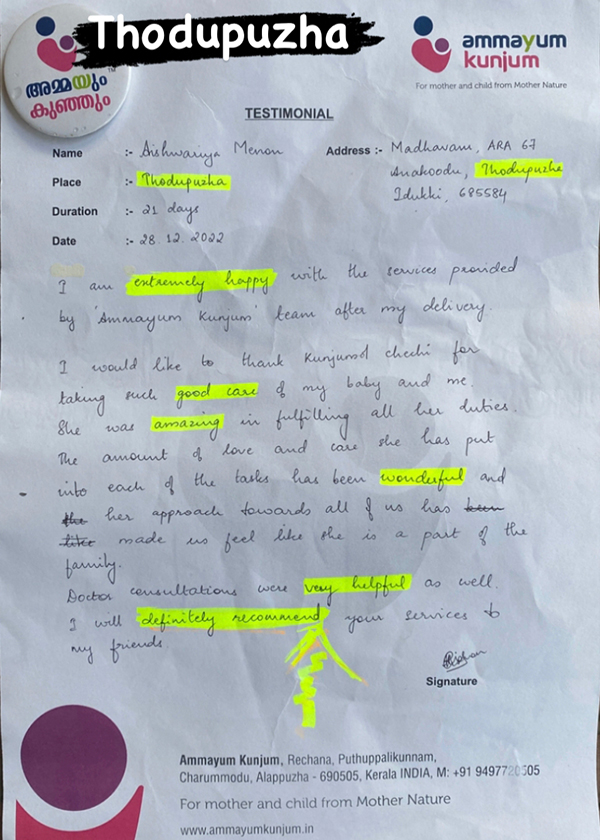 Thodupuzha
അമ്മയും
കുഞ്ഞും
ammayum
kunjum
For mother and child from Mother Nature
TESTIMONIAL
Name :- Aishwariya Menon
Place :- Thodupuzha
Duration :- 21 days
Date :- 28.12.2022
Address :- Madhavam, ARA 67
Anakoodu, Thodupuzha
Idukki, 685584
I am extremely happy with the services provided
by 'Ammayum Kunjum' team after my delivery.
I would like to thank Kunjumol chechi for
taking such good care of my baby and me.
She was amazing in fulfilling all her duties.
The amount of love and care she has put
into each of the tasks has been wonderful and
the her approach towards all of us has been
like made us feel like she is a part of the
family.
Doctor consultations were very helpful as well.
I will definitely recommend your services to
my friends.
Signature
Ammayum Kunjum, Rechana, Puthuppalikunnam,
Charummodu, Alappuzha - 690505, Kerala INDIA, M: +91 9497720505
For mother and child from Mother Nature
www.ammayumkunjum.in